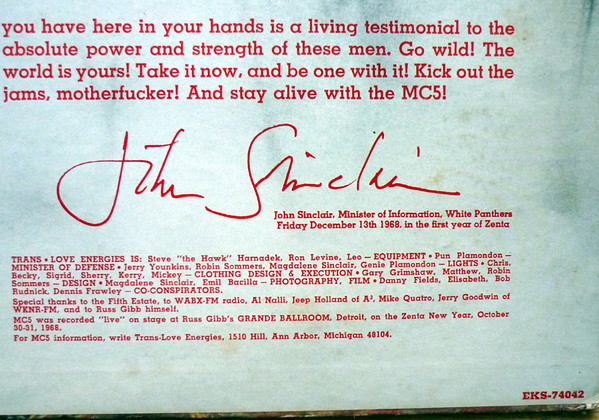 you have here in your hands is a living testimonial to the
absolute power and strength of these men. Go wild! The
world is yours! Take it now, and be one with it! Kick out the
jams, motherfucker! And stay alive with the MC5!
John Sinclair
John Sinclair, Minister of Information, White Panthers
Friday December 13th 1968, in the first year of Zenta
TRANS • LOVE ENERGIES IS: Steve "the Hawk" Harnadek, Ron Levine, Leo — EQUIPMENT • Pun Plamondon —
MINISTER OF DEFENSE • Jerry Younkins, Robin Sommers, Magdalene Sinclair, Genie Plamondon — LIGHTS • Chris,
Becky, Sigrid, Sherry, Kerry, Mickey — CLOTHING DESIGN & EXECUTION • Gary Grimshaw, Matthew, Robin
Sommers — DESIGN • Magdalene Sinclair, Emil Bacilla — PHOTOGRAPHY, FILM • Danny Fields, Elisabeth, Bob
Rudnick, Dennis Frawley — CO-CONSPIRATORS.
Special thanks to the Fifth Estate, to WABX-FM radio, Al Nalli, Jeep Holland of A², Mike Quatro, Jerry Goodwin of
WKNR-FM, and to Russ Gibb himself.
MC5 was recorded "live" on stage at Russ Gibb's GRANDE BALLROOM, Detroit, on the Zenta New Year, October
30-31, 1968.
For MC5 information, write Trans-Love Energies, 1510 Hill, Ann Arbor, Michigan 48104.
EKS-74042